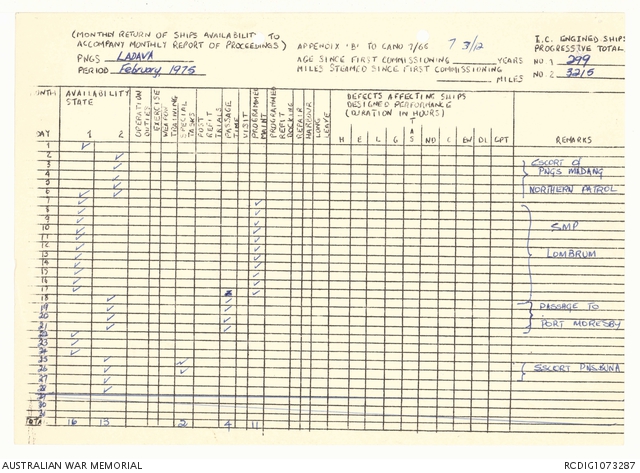 (MONTHLY RETURN OF SHIPS AVAILABILITY TO
ACCOMPANY MONTHLY REPORT OF PROCEEDINGS)
APPENDIX 'B' TO CANO 7/66
7 3/12
I.C. ENGINED SHIPS
PROGRESSIVE TOTAL
PNGS LADAVA
PERIOD February, 1975
AGE SINCE FIRST COMMISSIONING YEARS
MILES STEAMED SINCE FIRST COMMISSIONING
MILES
NO. 1 299
NO. 2 3215
AVAILABILITY
STATE
1 2
OPERATION DUTIES
EXERCISE
WEAPON TRAINING
SPECIAL TASKS
POST REFIT TRIALS
PASSAGE TIME
VISIT
PROGRAMMED MAINT
PROGRAMMED REFIT
DOCKING
REPAIR
HARBOUR
LONG LEAVE
DEFECTS AFFECTING SHIPS
DESIGNED PERFORMANCE
(DURATION IN HOURS)
H E L G T A S ND C EW DL CPT
REMARKS
DAY
1 ✓
2 ✓
3 ✓ ESCORT of
4 ✓ PNGS MADANG
5 ✓ NORTHERN PATROL
6 ✓ ✓
7 ✓ ✓
8 ✓ ✓
9 ✓ ✓ SMP
10 ✓ ✓
11 ✓ ✓
12 ✓ ✓ LOMBRUM
13 ✓ ✓
14 ✓ ✓
15 ✓ ✓
16 ✓ ✓
17 ✓ ✓
18 ✓ ✓
19 ✓ ✓ PASSAGE TO
20 ✓ ✓ PORT MORESBY
21 ✓ ✓
22 ✓
23 ✓
24 ✓
25 ✓ ✓
26 ✓ ✓ ESCORT PNGS BUNA
27 ✓
28 ✓
29
30
31
TOTAL 16 13 2 4 11
AUSTRALIAN WAR MEMORIAL
RCDIG1073287